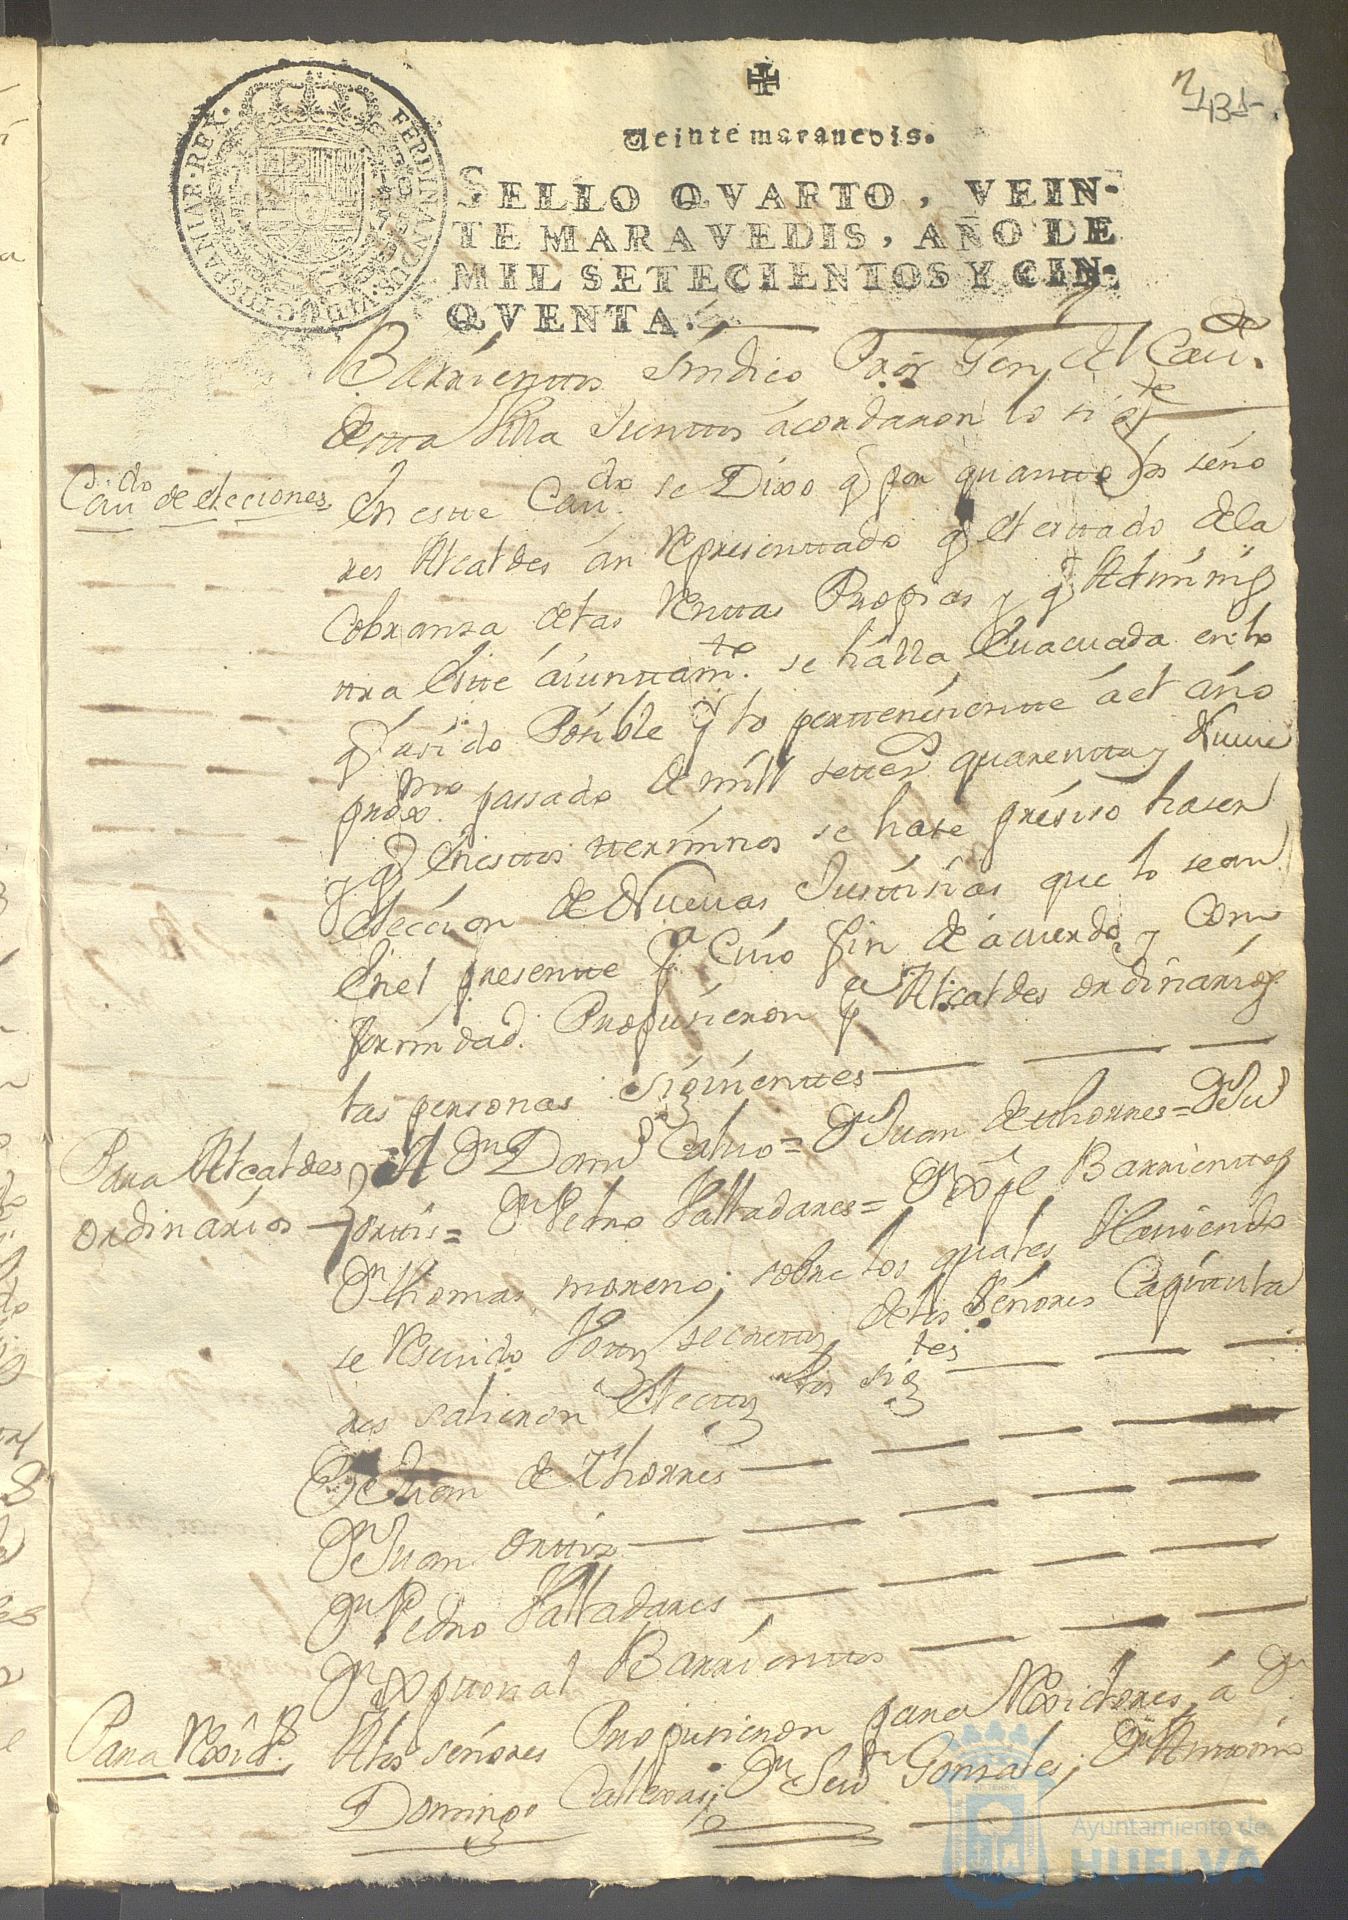 Veinte maravedis.
SELLO QVARTO, VEIN-
TE MARAVEDIS, AÑO DE
MIL SETECIENTOS Y CIN-
QVENTA.
FERDINANDUS VI D G HISPANIAR REX
431
Barrientos Sindico Pror Gen del Cavdo
desta Villa Juntos acordaron lo sigte
Cavdo de elecciones
En este Cavdo se Dixo q por quanto los seño
res Alcaldes an Representtado q el estado de la
Cobranza de las Renttas Propias y q Adminis
ttra Este aiunttamto se halla Evacuada en lo
q asido Posible y lo perttenesiente a el año
proxmo passado de mill settes quarentta y Nueve
y q En esttos tterminos se hase presiso haser
eleccion de Nuevas Justtisias que lo sean
En el presentte pa Cuio fin de acuerdo y Con
formidad Propusieron pa Alcaldes ordinarios
las personas Siguienttes
Para Alcaldes
ordinarios
A Dn Domo Calvo = Dn Juan de thorres = Dn Ju
orttis = Dn Pedro Valladares = Dn Xptl Barrienttos
Dn thomas moreno; sobre los quales Haviendo
se Resevido Vottos secrettos de los Señores Capittula
res salieron Electtos los sigtes
Dn Juan de Thorres
Dn Juan orttiz
Dn Pedro Valladares
Dn Xpttoval Barrienttos
Para Rexidrs
Alos señores Propusieron para Rexidores, á Dn
Domingo Callexas; Dn Sevn Gonzales; Dn Anttonio
Ayuntamiento de
HUELVA